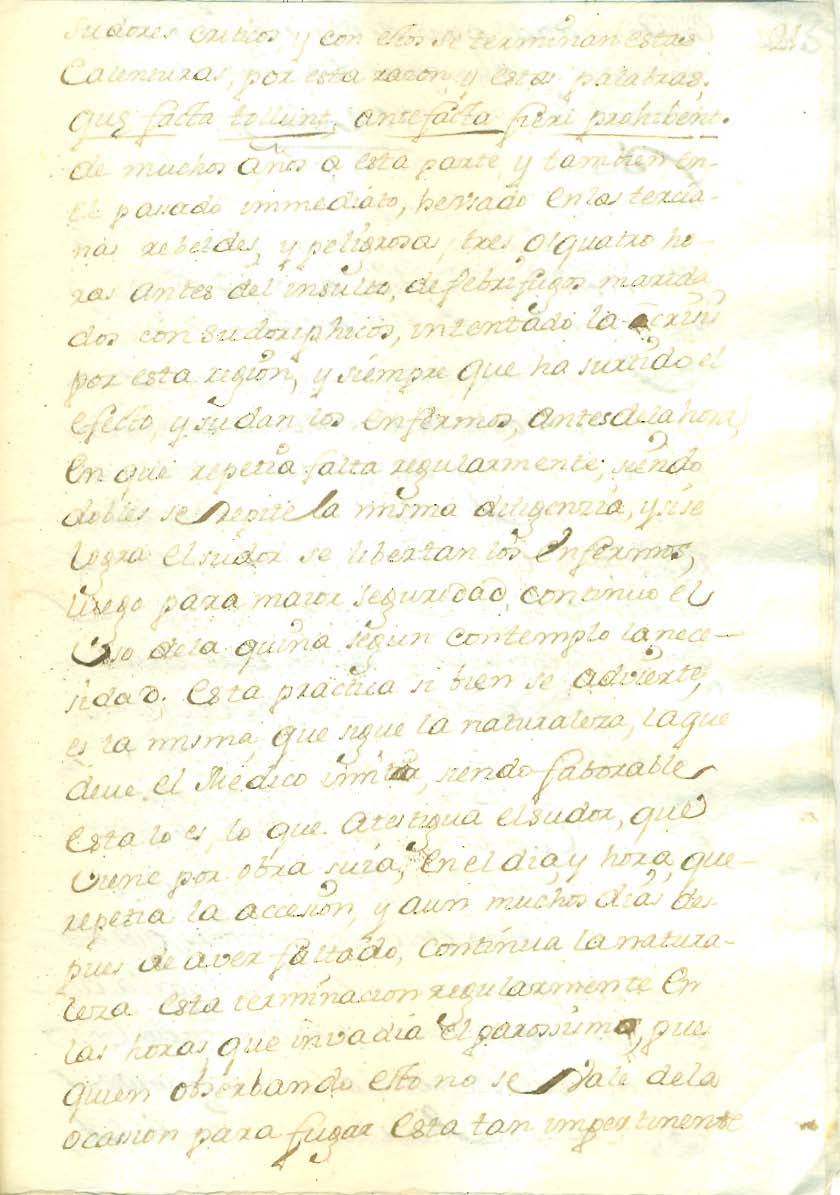 sudores criticos y con estos se terminan estas
Calenturas, por esta razon, y estas palabras,
que facta tollunt, antefacta fieri prohibent.
de muchos años a esta parte, y tambien en-
el pasado immediato, he vsado en las tercia-
nas rebeldes, y peligrosas, tres, ol quatro ho-
ras antes del insulto, de febrifugos marida
dos con sudoriphicos, intentado la crisis
por esta region, y siempre que ha surtido el
efecto, y sudan los enfermos, antes dela hora,
en que repetia falta regularmente; siendo
dobles se repite la misma diligenzia, y si se
logra el sudor se libertan los enfermos,
luego para maior seguridad, continuo el
Vso dela quina segun contemplo la nece-
sidad; esta practica si bien se advierte,
es la misma, que sigue la naturaleza, la que
deve el Medico imitar, siendo faborable
esta lo es, lo que atestigua el sudor, que
viene por obra suia, en el dia, y hora, que-
repetia la accesion, y aun muchos dias des
pues de aver faltado, continua la natura-
leza esta terminacion regularmente en
las horas que invadia el parossismo, pues
quien obserbando esto no se Vale dela
ocassion para fugar esta tan impertinente